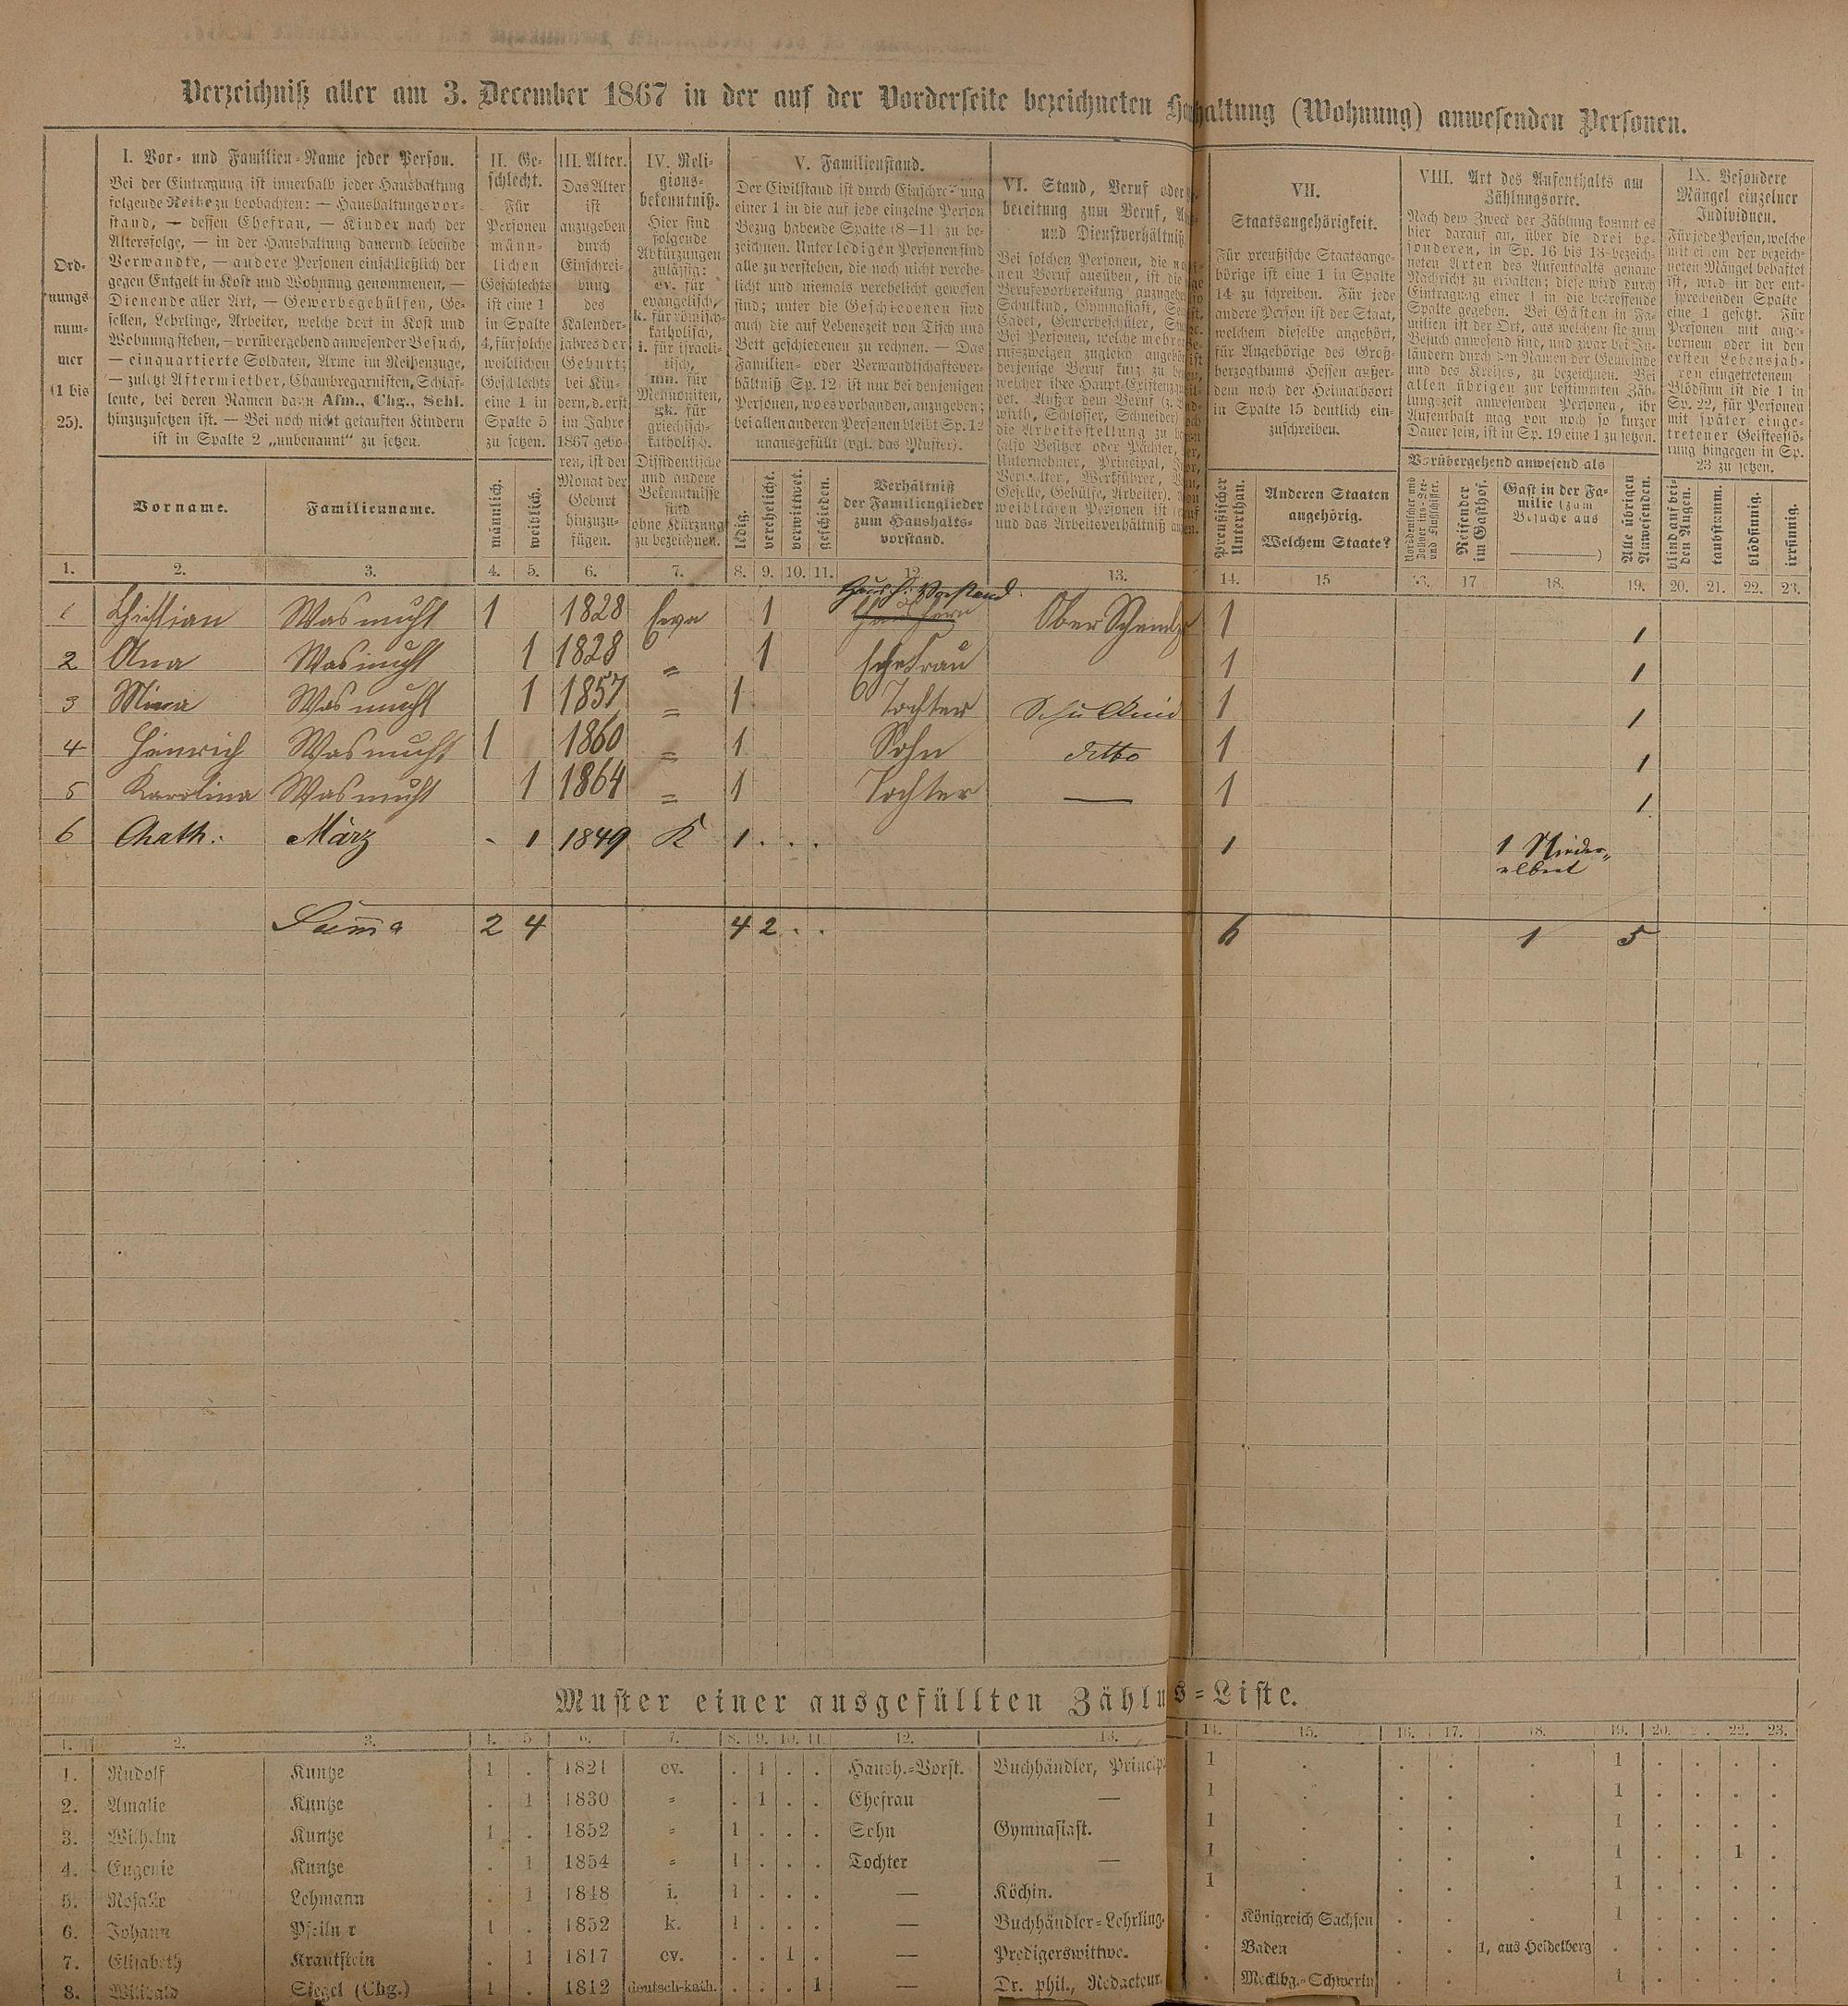 Verzeichniß aller am 3. December 1867 in der auf der Vorderseite bezeichneten Haushaltung (Wohnung) anwesenden Personen.
Ord-
nungs
num-
mer
(1 bis
25).
I. Vor- und Familien-Name jeder Person.
Bei der Eintragung ist innerhalb jeder Haushaltung
folgende Reihe zu beobachten: — Haushaltungsvor-
stand, — dessen Ehefrau, — Kinder nach der
Altersfolge, — in der Haushaltung dauernd lebende
Verwandte, — andere Personen einschließlich der
gegen Entgelt in Kost und Wohnung genommenen, —
Dienende aller Art, — Gewerbsgehülfen, Ge-
sellen, Lehrlinge, Arbeiter, welche dort in Kost und
Wohnung stehen, — vorübergehend anwesender Besuch,
— einquartierte Soldaten, Arme im Reihenzuge,
— zuletzt Aftermiether, Chambregarnisten, Schlaf-
leute, bei deren Namen dann Afm., Chg., Schl.
hinzuzusetzen ist. — Bei noch nicht getauften Kindern
ist in Spalte 2 „unbenannt“ zu setzen.
Vorname.
Familienname.
II. Ge-
schlecht.
Für
Personen
männ-
lichen
Geschlechts
ist eine 1
in Spalte
4, für solche
weiblichen
Geschlechts
eine 1 in
Spalte 5
zu setzen.
männlich.
weiblich.
III. Alter.
Das Alter
ist
anzugeben
durch
Einschrei-
bung
des
Kalender-
jahres der
Geburt;
bei Kin-
dern, d. erst
im Jahre
1867 gebo-
ren, ist der
Monat der
Geburt
hinzuzu-
fügen.
IV. Reli-
gions-
bekenntniß.
Hier sind
folgende
Abkürzungen
zulässig:
ev. für
evangelisch,
k. für römisch-
katholisch,
i. für israeli-
tisch,
mn. für
Mennoniten,
gk. für
griechisch-
katholisch.
Dissidentische
und andere
Bekenntnisse
sind
ohne Kürzung
zu bezeichnen.
V. Familienstand.
Der Civilstand ist durch Einschreibung
einer 1 in die auf jede einzelne Person
Bezug habende Spalte (8—11) zu be-
zeichnen. Unter ledigen Personen sind
alle zu verstehen, die noch nicht verehe-
licht und niemals verehelicht gewesen
sind; unter die Geschiedenen sind
auch die auf Lebenszeit von Tisch und
Bett geschiedenen zu rechnen. — Das
Familien- oder Verwandtschaftsver-
hältniß (Sp. 12) ist nur bei denjenigen
Personen, wo es vorhanden, anzugeben;
bei allen anderen Personen bleibt Sp. 12
unausgefüllt (vgl. das Muster).
ledig.
verehelicht.
verwittwet.
geschieden.
Verhältniß
der Familienglieder
zum Haushalts-
vorstand.
VI. Stand, Beruf oder
bereitung zum Beruf,
und Dienstverhältniß
Bei solchen Personen, die
nen Beruf ausüben, ist die
Berufsvorbereitung anzugeben
Schulkind, Gymnasiast,
Cadet, Gewerbeschüler,
Bei Personen, welche mehre
rufszweigen zugleich
derjenige Beruf kurz zu
welcher ihre Haupt-Existenz
det. Außer dem Beruf (z.
wirth, Schlosser, Schneider)
die Arbeitsstellung zu
(also Besitzer oder Pächter,
Unternehmer, Principal,
Verwalter, Werkführer,
Geselle, Gehülfe, Arbeiter).
weiblichen Personen ist
und das Arbeitsverhältniß
VII.
Staatsangehörigkeit.
Für preußische Staatsange-
hörige ist eine 1 in Spalte
14 zu schreiben. Für jede
andere Person ist der Staat,
welchem dieselbe angehört,
für Angehörige des Groß-
herzogthums Hessen außer-
dem noch der Heimathsort
in Spalte 15 deutlich ein-
zuschreiben.
Preußischer
Unterthan.
Anderen Staaten
angehörig.
Welchem Staate?
VIII. Art des Aufenthalts am
Zählungsorte.
Nach dem Zweck der Zählung kommt es
hier darauf an, über die drei be-
sonderen, in Sp. 16 bis 18 bezeich-
neten Arten des Aufenthalts genaue
Nachricht zu erhalten; diese wird durch
Eintragung einer 1 in die betreffende
Spalte gegeben. Bei Gästen in Fa-
milien ist der Ort, aus welchem sie zum
Besuch anwesend sind, und zwar bei In-
ländern durch den Namen der Gemeinde
und des Kreises, zu bezeichnen. Bei
allen übrigen zur bestimmten Zäh-
lungszeit anwesenden Personen, ihr
Aufenthalt mag von noch so kurzer
Dauer sein, ist in Sp. 19 eine 1 zu setzen.
Vorübergehend anwesend als
Norddeutscher und
Zollver-ins-See-
und Flußschiffer.
Reisender
im Gasthof.
Gast in der Fa-
milie (zum
Besuche aus
)
Alle übrigen
Anwesenden.
IX. Besondere
Mängel einzelner
Individuen.
Für jede Person, welche
mit einem der bezeich-
neten Mängel behaftet
ist, wird in der ent-
sprechenden Spalte
eine 1 gesetzt. Für
Personen mit ange-
bornem oder in den
ersten Lebensjah-
ren eingetretenem
Blödsinn ist die 1 in
Sp. 22, für Personen
mit später einge-
tretener Geistesstö-
rung hingegen in Sp.
23 zu setzen.
blind auf bei-
den Augen.
taubstumm.
blödsinnig.
irrsinnig.
1. 2. 3. 4. 5. 6. 7. 8. 9. 10. 11. 12 13. 14. 15 16. 17 18. 19. 20. 21. 22. 23.
Haush: Vorstand
1 Christian Wasmuht 1 1828 Evan 1 Ober Schmelzer 1 1
2 Ana Wasmuht 1 1828 = 1 Ehefrau 1 1
3 Mina Wasmuht 1 1857 = 1 Tochter Schulkind 1 1
4 Heinrich Wasmuht 1 1860 = 1 Sohn ditto 1 1
5 Karolina Wasmuht 1 1864 = 1 Tochter — 1 1
6 Chath: März - 1 1849 K 1 . . . 1 1 Nieder-
elbert
Suma 2 4 4 2 . . 6 1 5
Muster einer ausgefüllten Zählungs-Liste.
1. 2. 3. 4. 5 6. 7. 8. 9. 10. 11. 12. 13. 14. 15. 16. 17. 18. 19. 20. 22. 23.
1. Rudolf Kuntze 1 . 1821 ev. . 1 . . Haush.-Vorst. Buchhändler, Princip. 1 . . . . 1 . . . .
2. Amalie Kuntze . 1 1830 = . 1 . . Ehefrau — 1 . . . . 1 . . . .
3. Wilhelm Kuntze 1 . 1852 = 1 . . . Sohn Gymnasiast. 1 . . . . 1 . . . .
4. Eugenie Kuntze . 1 1854 = 1 . . . Tochter — 1 . . . . 1 . . 1 .
5. Rosalie Lehmann . 1 1848 i. 1 . . . — Köchin. 1 . . . . 1 . . . .
6. Johann Pfeilner 1 . 1852 k. 1 . . . — Buchhändler-Lehrling. . Königreich Sachsen . . . 1 . . . .
7. Elisabeth Krautstein . 1 1817 ev. . . 1 . — Predigerswittwe. . Baden . . 1, aus Heidelberg . . . . .
8. Willibald Siegel (Chg.) 1 . 1812 deutsch-kath. . . . 1 — Dr. phil., Redacteur. . Mecklbg.-Schwerin . . . 1 . . . .